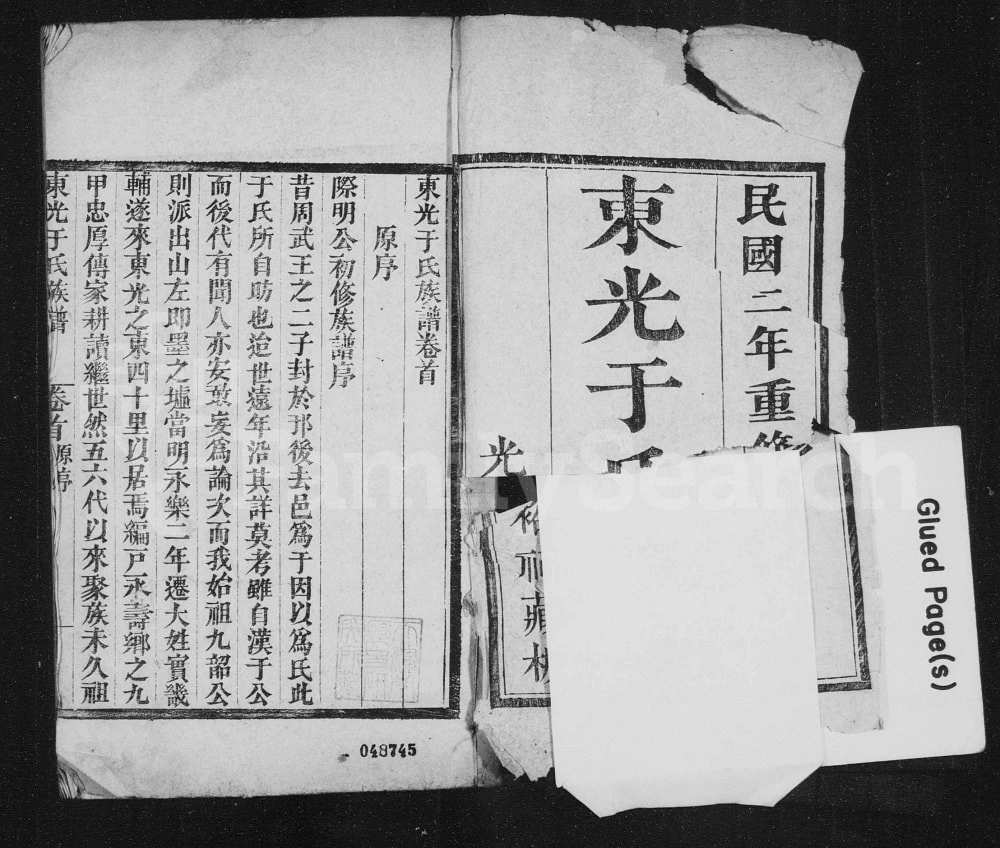 民國二年重修
東光于氏
光
裕祠藏板
Glued Page(s)
東光于氏族譜卷首
原序
際明公初修族譜序
昔周武王之二子封於邘後去邑爲于因以爲氏此
于氏所自昉也迨世遠年沿其詳莫考雖自漢于公
而後代有聞人亦安敢妄爲論次而我始祖九韶公
則派出山左即墨之墟當明永樂二年遷大姓實畿
輔遂來東光之東四十里以居焉編戸永壽鄉之九
甲忠厚傳家耕讀繼世然五六代以來聚族未久祖
東光于氏族譜 卷首 原序
048745
FamilySearch